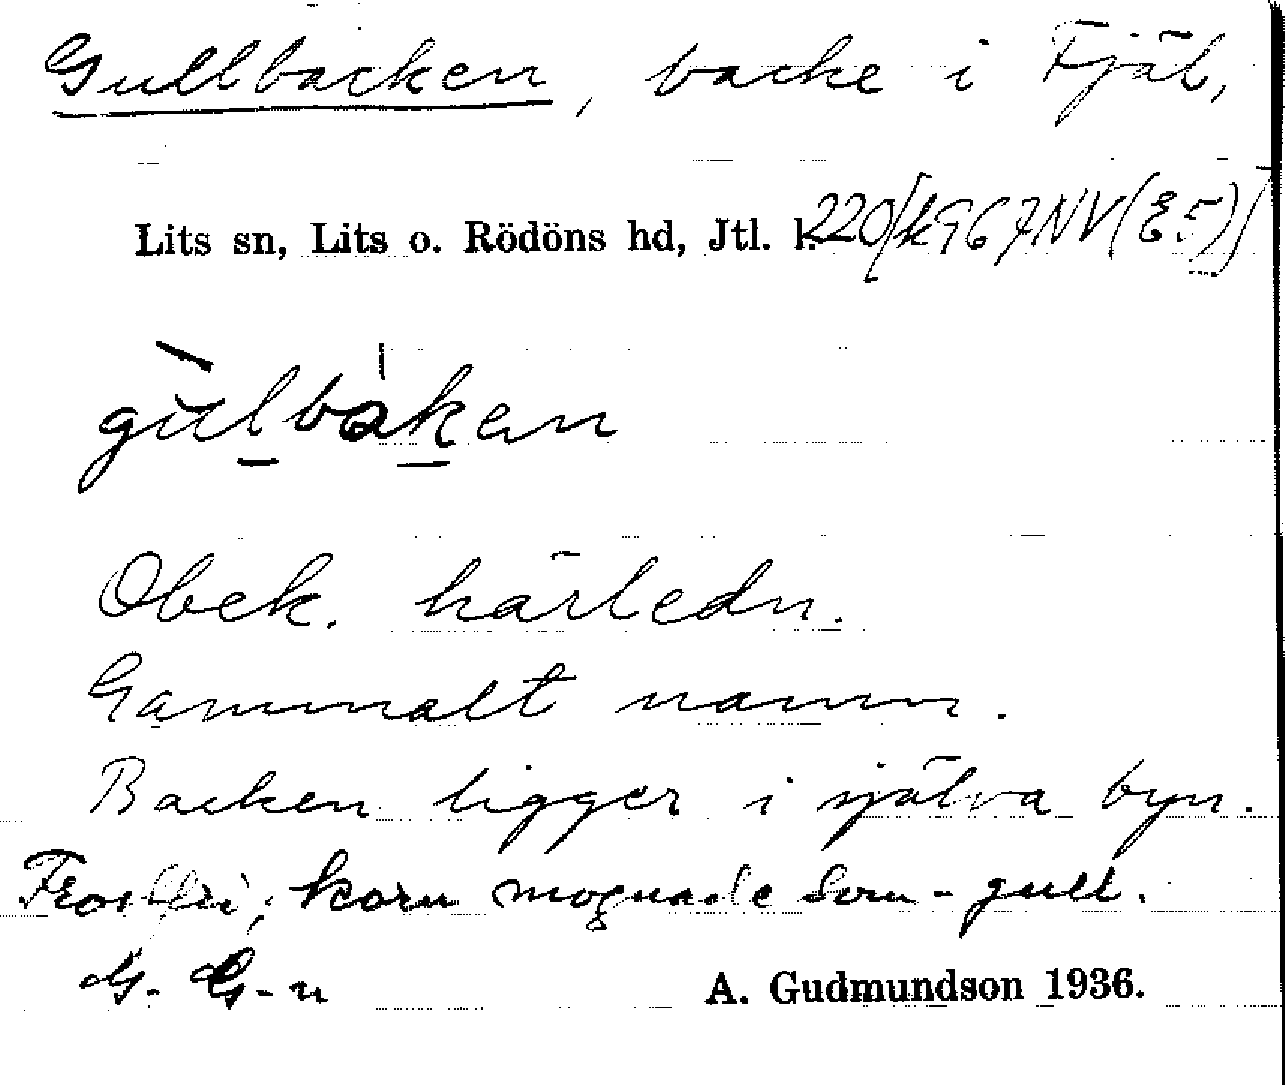 Gullbacken, backe i Fjäl,
Lits sn, Lits o. Rödöns hd, Jtl. l. 220/k967NV(E5)/
gu̇lbàken
Obek. härledn.
Gammalt namn.
Backen ligger i själva byn.
Frostfri; korn mognade som - gull.
G. G-n A. Gudmundson 1936.